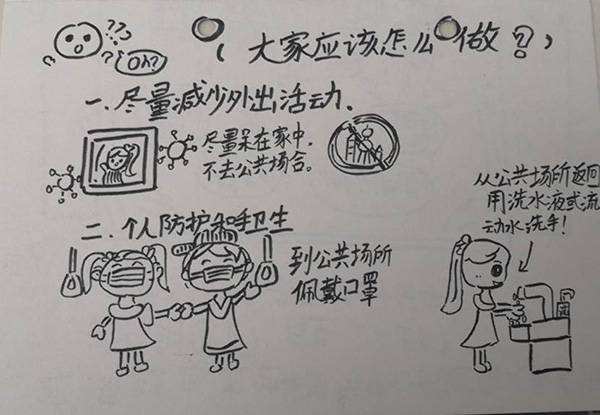 ???
?
Oh?
(大家应该怎么做？)
一.尽量减少外出活动.
尽量呆在家中.
不去公共场合。
二.个人防护和手卫生
到公共场所
佩戴口罩
从公共场所返回
用洗水液或流
动水洗手！